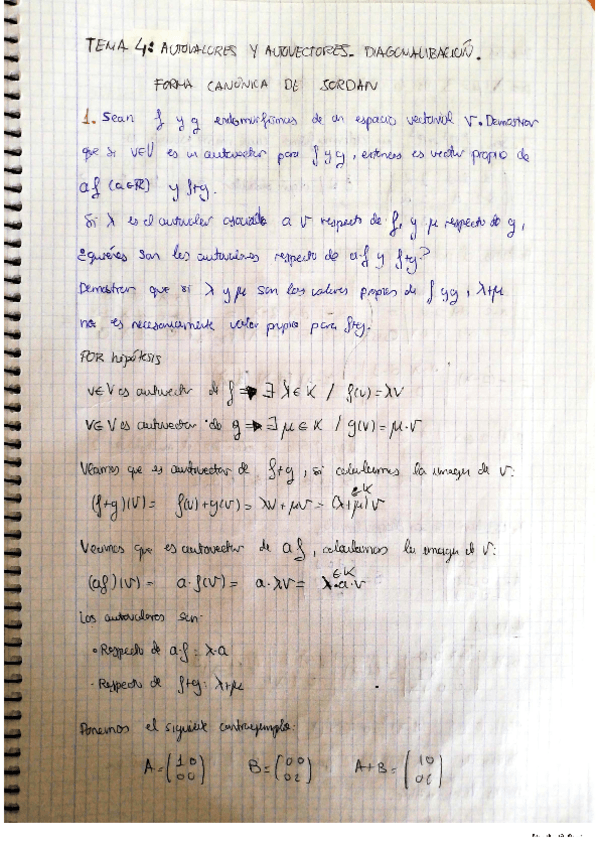 TEMA 4: AUTOVALORES Y AUTOVECTORES. DIAGONALIZACIÓN.
FORMA CANÓNICA DE JORDAN
1. Sean f y g endomorfismos de un espacio vectorial V. Demostrar
que si v∈V es un autovector para f y g, entonces es vector propio de
af (a∈ℝ) y f+g.
Si λ es el autovalor asociado a v respecto de f, y μ respecto de g,
¿quiénes son los respecto de a·f y f+g?
Demostrar que si λ y μ son los valores propios de f y g, λ+μ
no es necesariamente valor propio para f+g.
POR hipótesis
v∈V es autovector de f ⇒ ∃ λ∈K / f(v)=λv
v∈V es autovector de g ⇒ ∃ μ∈K / g(v)=μ·v
Veamos que es autovector de f+g, si calculamos la imagen de v:
(f+g)(v)= f(v)+g(v)= λv+μv= (λ+μ)v ∈K
Veamos que es autovector de af, calculamos la imagen de v:
(af)(v)= a·f(v)= a·λv= λ·a·v ∈K
Los autovalores son:
• Respecto de a·f: λ·a
· Respecto de f+g: λ+μ
Ponemos el siguiente contraejemplo:
A=(1 0 B=(0 0 A+B=(1 0
0 0)